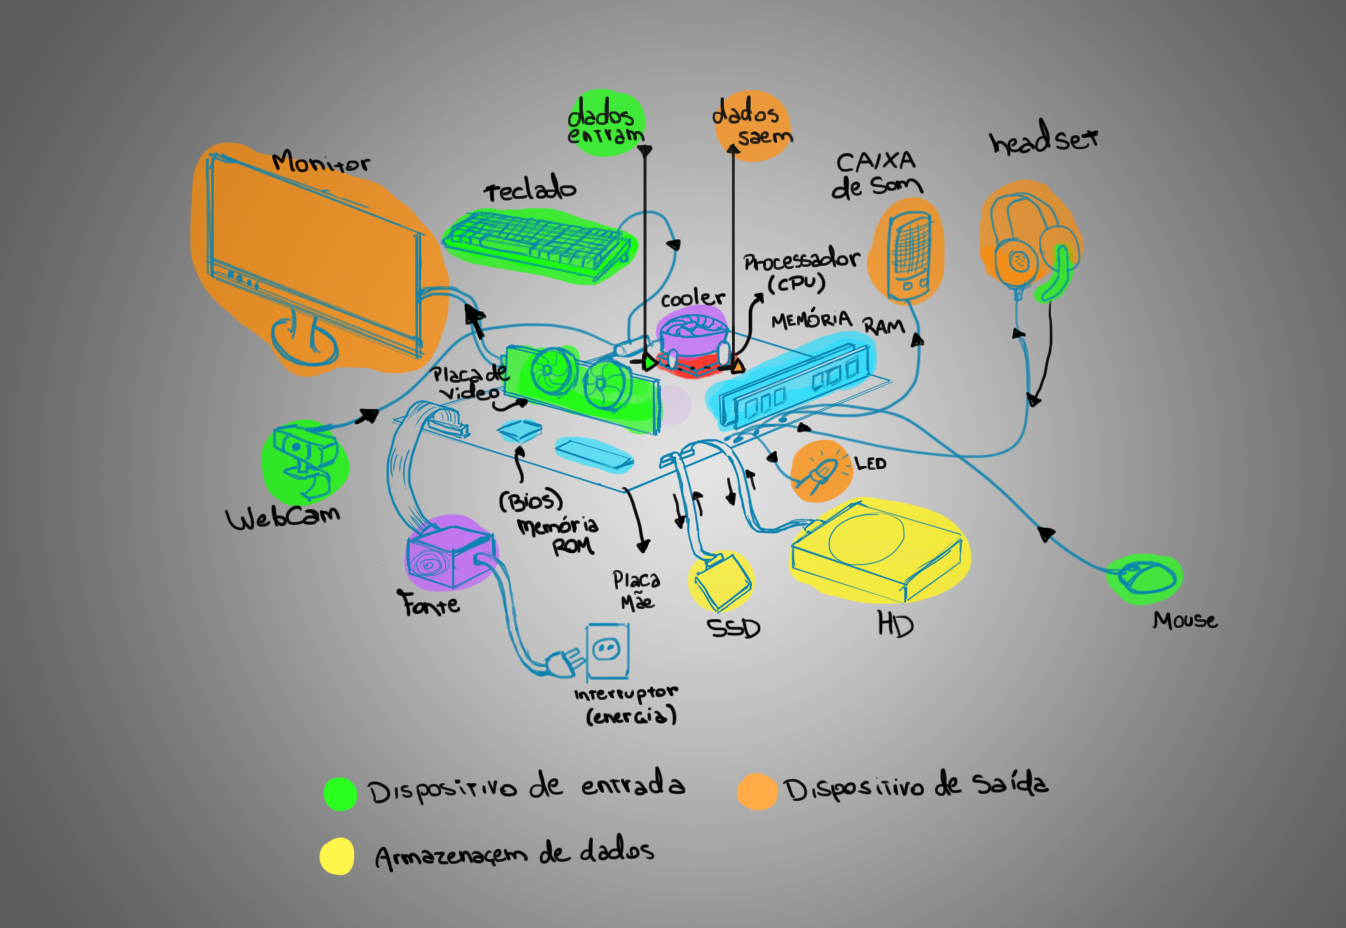 dados
entram
dados
saem
headset
Monitor
CAIXA
de Som
Teclado
Processador
(CPU)
cooler
MEMÓRIA RAM
Placa de
Video
LED
(Bios)
Memória
ROM
WebCam
Placa
Mãe
Fonte
SSD
HD
Mouse
Interruptor
(energia)
Dispositivo de entrada
Dispositivo de Saída
Armazenagem de dados